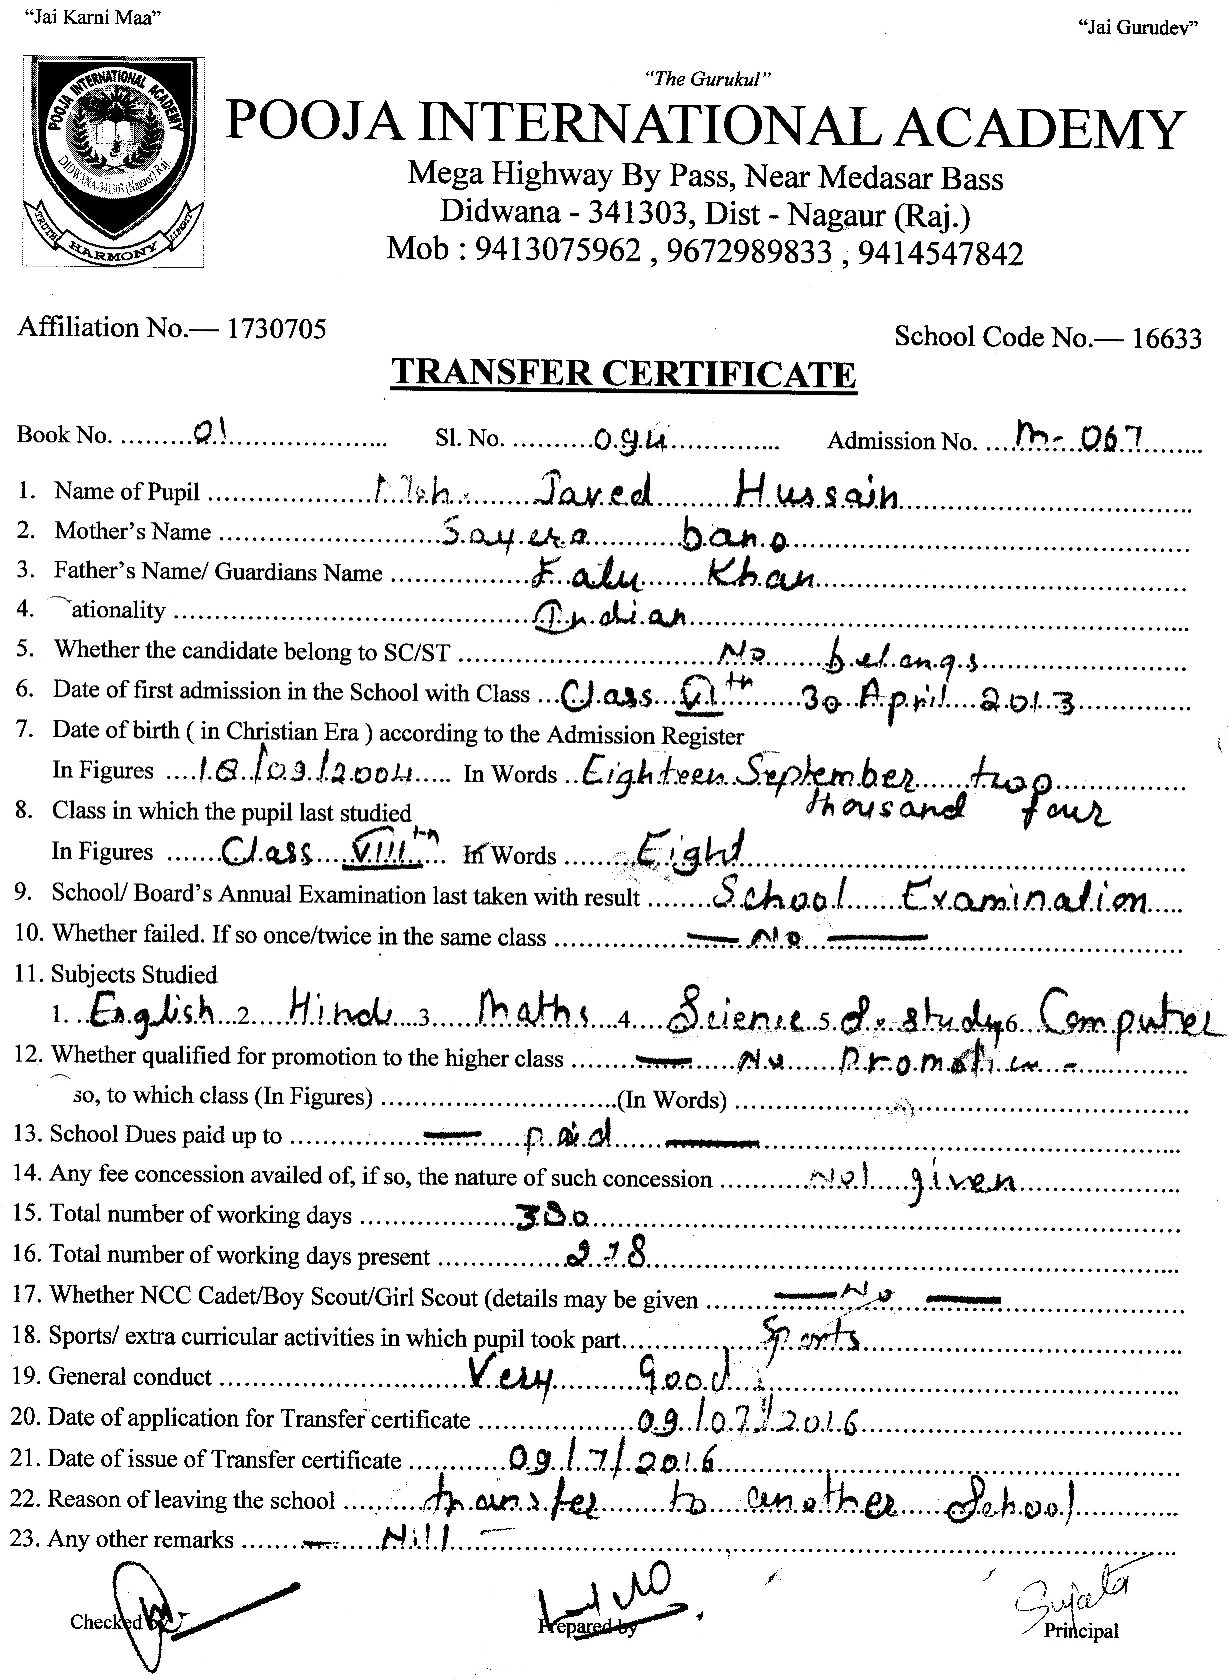 “Jai Karni Maa”
“Jai Gurudev”
“The Gurukul”
POOJA INTERNATIONAL ACADEMY
POOJA INTERNATIONAL ACADEMY
DIDWANA-341303 (Nagaur) Raj.
TRUTH HARMONY LIBERTY
Mega Highway By Pass, Near Medasar Bass
Didwana - 341303, Dist - Nagaur (Raj.)
Mob : 9413075962 , 9672989833 , 9414547842
Affiliation No.— 1730705
School Code No.— 16633
TRANSFER CERTIFICATE
Book No. 01 Sl. No. 094 Admission No. M-067
1. Name of Pupil Moh. Javed Hussain
2. Mother’s Name Sayera bano
3. Father’s Name/ Guardians Name Falu Khan
4. ationality Indian
5. Whether the candidate belong to SC/ST No belangs
6. Date of first admission in the School with Class Class VIth 30 April 2013
7. Date of birth ( in Christian Era ) according to the Admission Register
In Figures 18/09/2004 In Words Eighteen September two
thousand four
8. Class in which the pupil last studied
In Figures Class VIIIth In Words Eight
9. School/ Board’s Annual Examination last taken with result School Examination
10. Whether failed. If so once/twice in the same class — No —
11. Subjects Studied
1. English 2. Hindi 3. Maths 4. Science 5. S. study 6. Computer
12. Whether qualified for promotion to the higher class — No Promotion -
so, to which class (In Figures) (In Words)
13. School Dues paid up to — paid —
14. Any fee concession availed of, if so, the nature of such concession Not given
15. Total number of working days 300
16. Total number of working days present 278
17. Whether NCC Cadet/Boy Scout/Girl Scout (details may be given — No —
18. Sports/ extra curricular activities in which pupil took part Sports
19. General conduct Very Good
20. Date of application for Transfer certificate 09/07/2016
21. Date of issue of Transfer certificate 09/7/2016
22. Reason of leaving the school transfer to another School
23. Any other remarks — Nill —
Sujata
Checked by
Prepared by
Principal